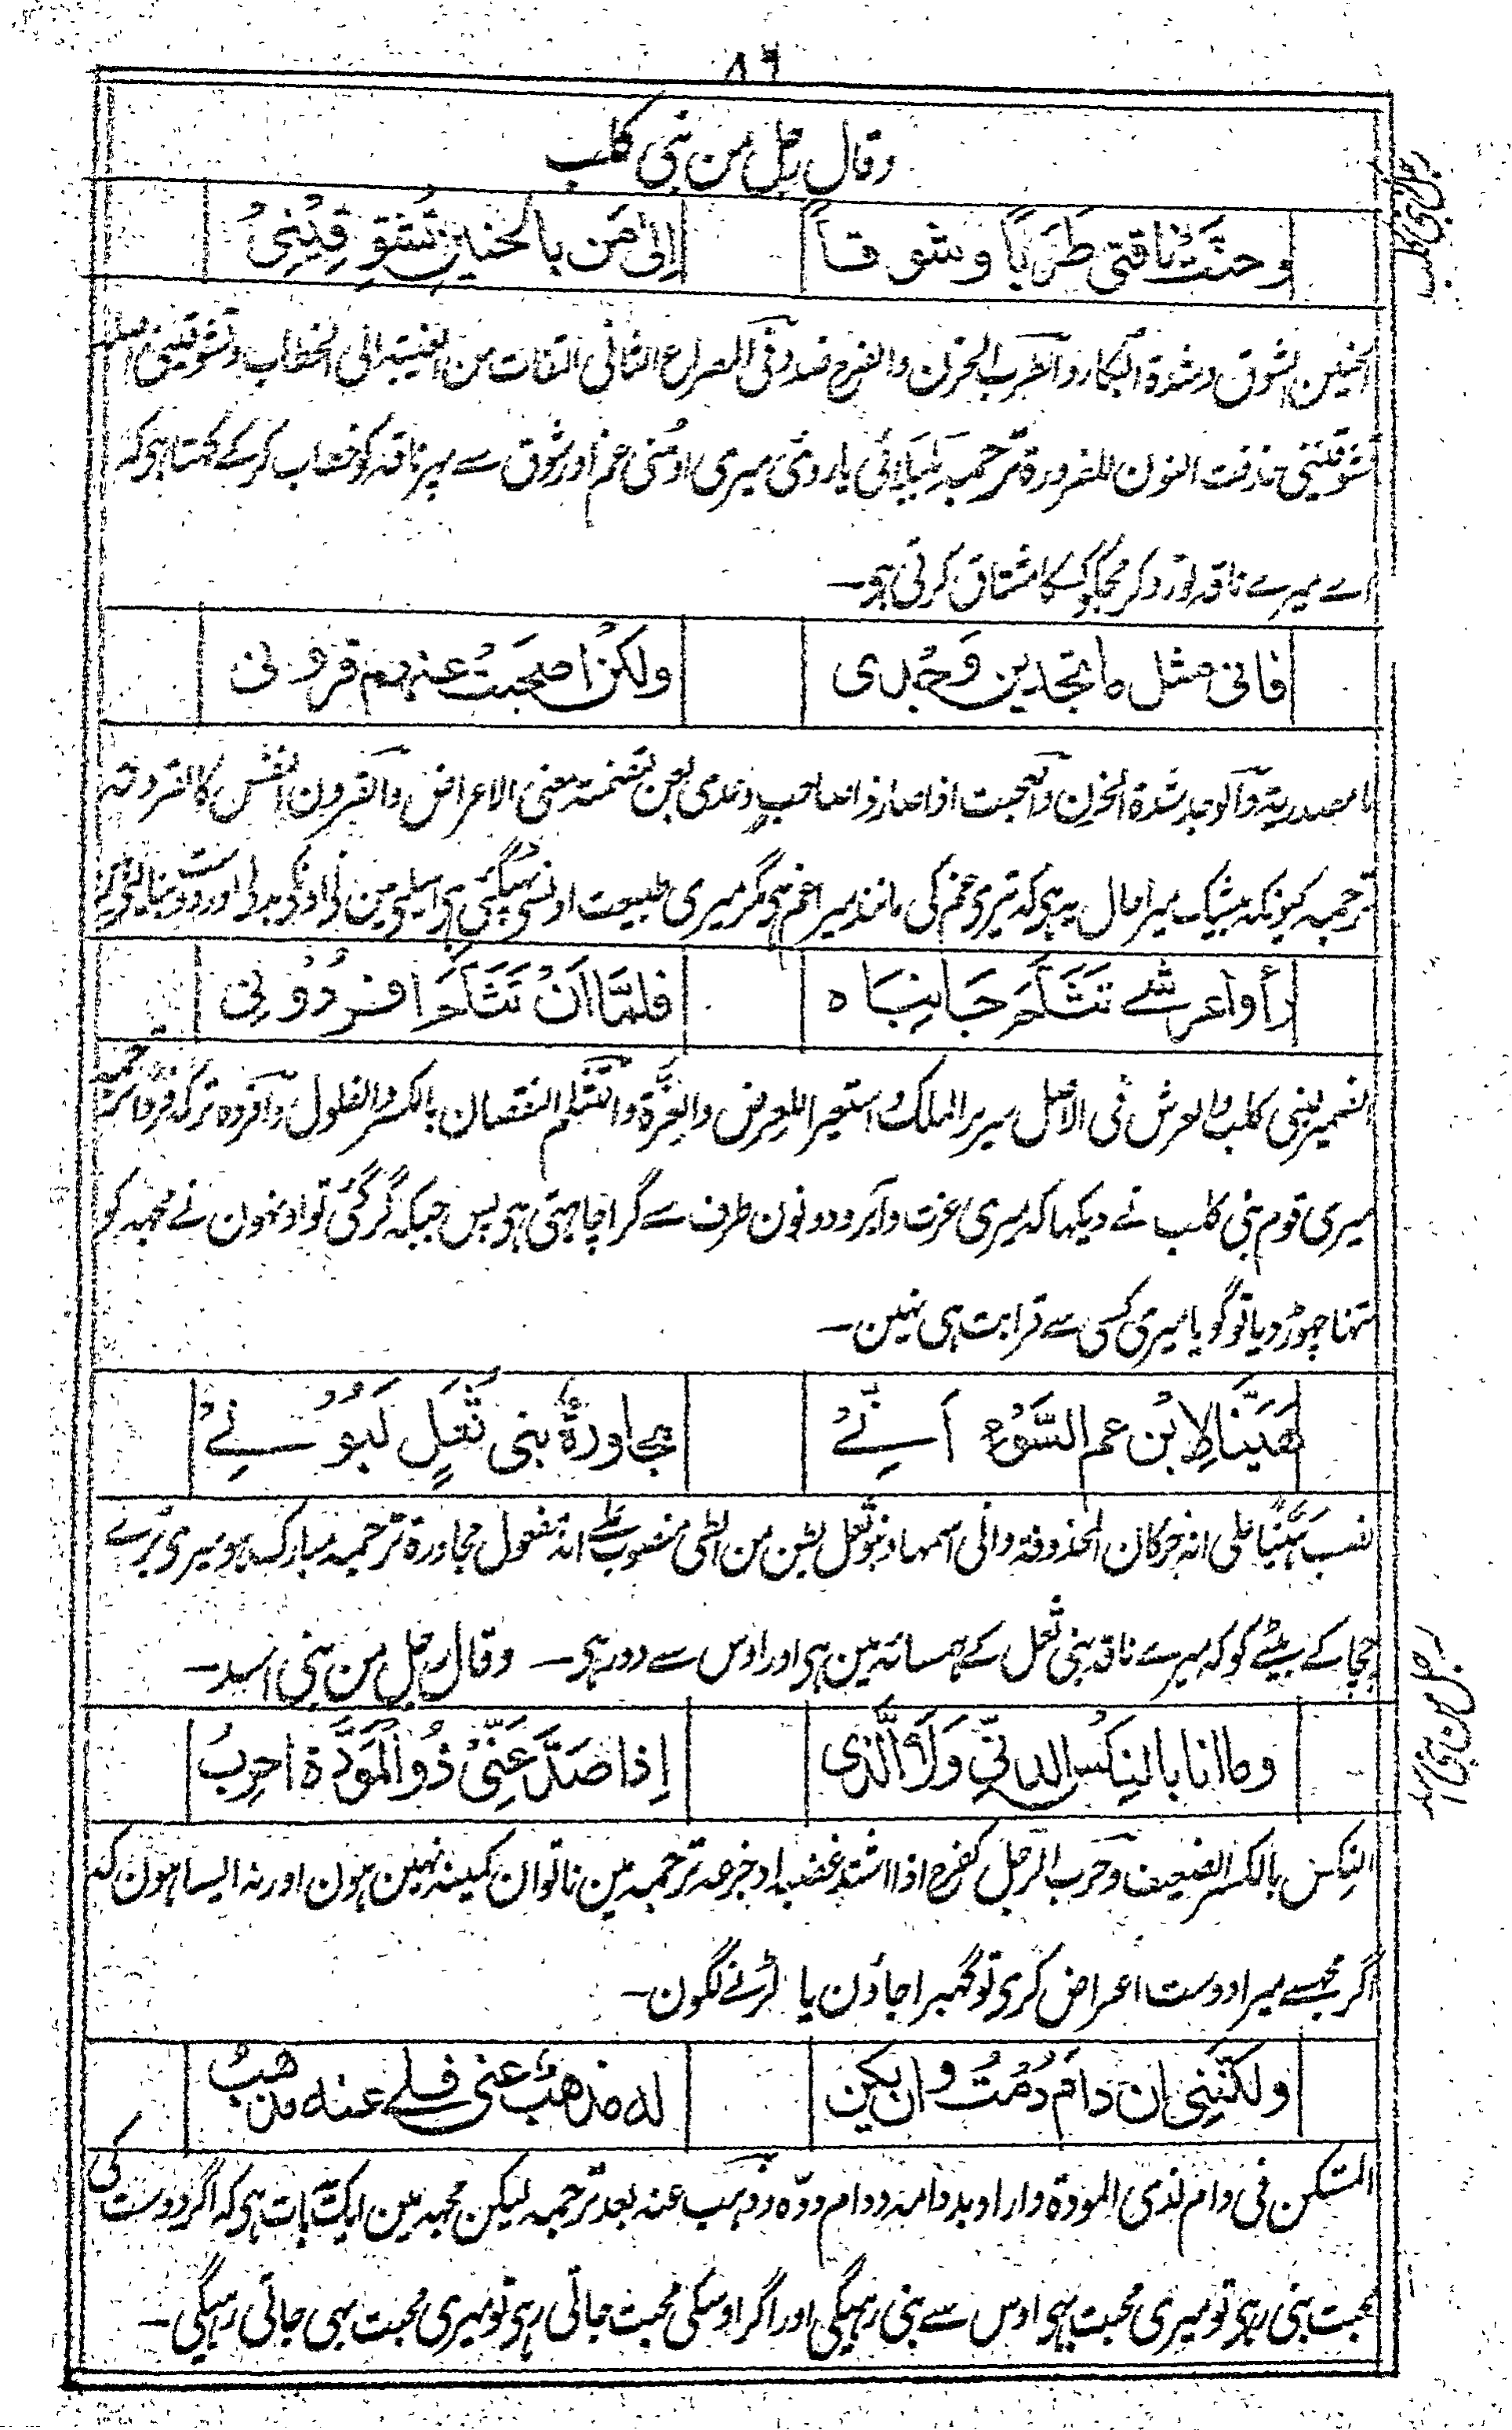 ۸۶
وقال رجل من بنی کلب
رجل من بنی کلب
وحنَّتْ ناقتی طَرَبًا وشوقاً
اِلیٰ مَن بالحنینِ تُشَوِّقِیْنِیْ
الحنین الشوق وشدة البکاء والطرب الحزن والفرح ضد وفی المصراع الثانی التفات من الغیبة الی الخطاب وتشوقینی اصله
تشوقیننی حذفت النون للضرورة ترجمہ بلبلائی یا روئی میری اونٹنی غم اور شوق سے پہر ناقہ کو خطاب کر کے کہتا ہی کہ
اے میرے ناقہ تو رو کر مجہکو کسکا مشتاق کرتی ہو۔
فانی مثل ما تجدین وَجْدی
ولکنْ اصحبت عنہم قرونی
ما مصدریة والوجد شدة الحزن واصحبت اذا صار ذا صاحب وعدی بعن لتضمنه معنی الاعراض والقرون النفس کالقرونة
ترجمہ کیونکہ بیشک میرا حال یہ ہی کہ تیری غم کی مانند میرا غم ہی مگر میری طبیعت اونسی
رأوا عرشے تَثَلَّمَ جَانِبَاه
فلمَّا اَنْ تَثَلَّمَ افردُوْنِی
الضمیر لبنی کلب والعرش فی الاصل سریر الملک واستعیر للعرض والعزة والتثلم النقصان بالکسر والفلول وافرده ترکه فردا ترجمہ
میری قوم بنی کلب نے دیکہا کہ میری عزت وآبرو دونون طرف سے گرا چاہتی ہی پس جبکہ گر گئی تو اونہون نے مجہہ کو
تنہا چہوڑ دیا تو گویا میری کسی سے قرابت ہی نہین۔
هَنِیْئًا لِابْن عم السَّوْءِ اَنِّےْ
مجاورةٌ بنی ثُعَلٍ لَبُوْنِےْ
نصب ہنیئًا علی انہ خبر کان المحذوفہ وانی اسمہا وبنو ثعل بطن من الطی منصوب علے انہ مفعول مجاورة ترجمہ مبارک ہو میری بُرے
چچا کے بیٹے کو کہ میرے ناقہ بنی ثعل کے ہمسائہ مین ہی اور اوس سے دور ہی۔ وقال رجل من بنی اسد۔
رجل من بنی اسد
وما انا بالنِکْس الدنیِّ وَلَا الَّذی
اِذا صَدَّ عَنِّیْ ذُو الْمَوَدَّة احرِبُ
النِکس بالکسر الضعیف وحرب الرجل کفرح اذا اشتد غضبه او جزعه ترجمہ مین ناتوان کمینہ نہین ہون اور نہ ایسا ہون کہ
اگر مجہسے میرا دوست اعراض کری تو گہبرا جاؤن یا لڑنے لگون۔
ولکنَّنِی ان دامَ دُمْتُ وان یکن
له مذهبٌ عنی فلے عنه مذهبُ
المستکن فی دام لذی المودة واراد بدوامه دوام ودّه وذہب عنه بعد ترجمہ لیکن مجہہ مین ایک بات ہی کہ اگر دوست کی
محبت بنی رہی تو میری محبت بہی اوس سے بنی رہیگی اور اگر اوسکی محبت جاتی رہی تو میری محبت بہی جاتی رہیگی۔